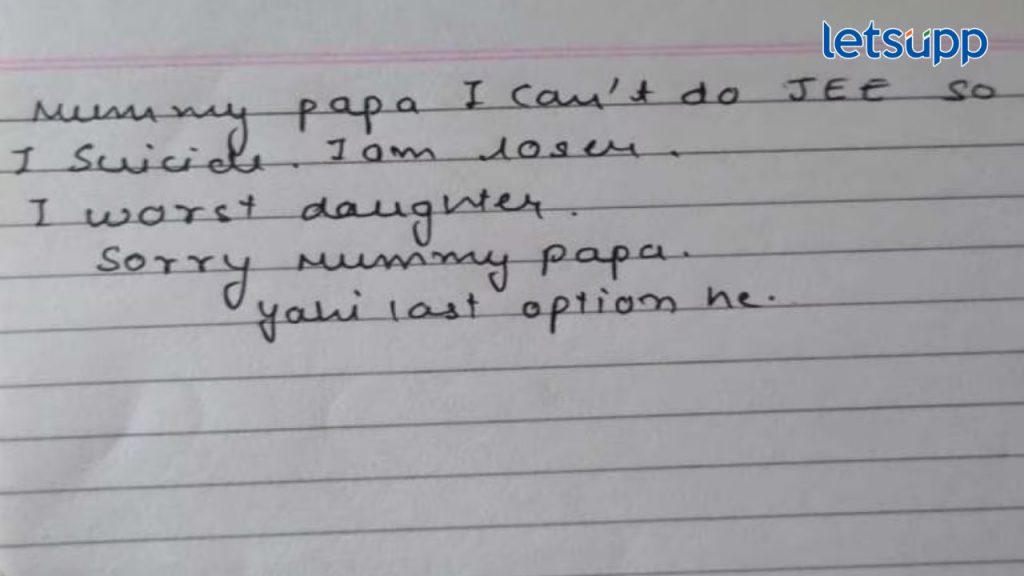 letsupp
Mummy papa I can't do JEE so
I suicide. I am loser.
I worst daughter.
Sorry mummy papa.
yahi last option he.